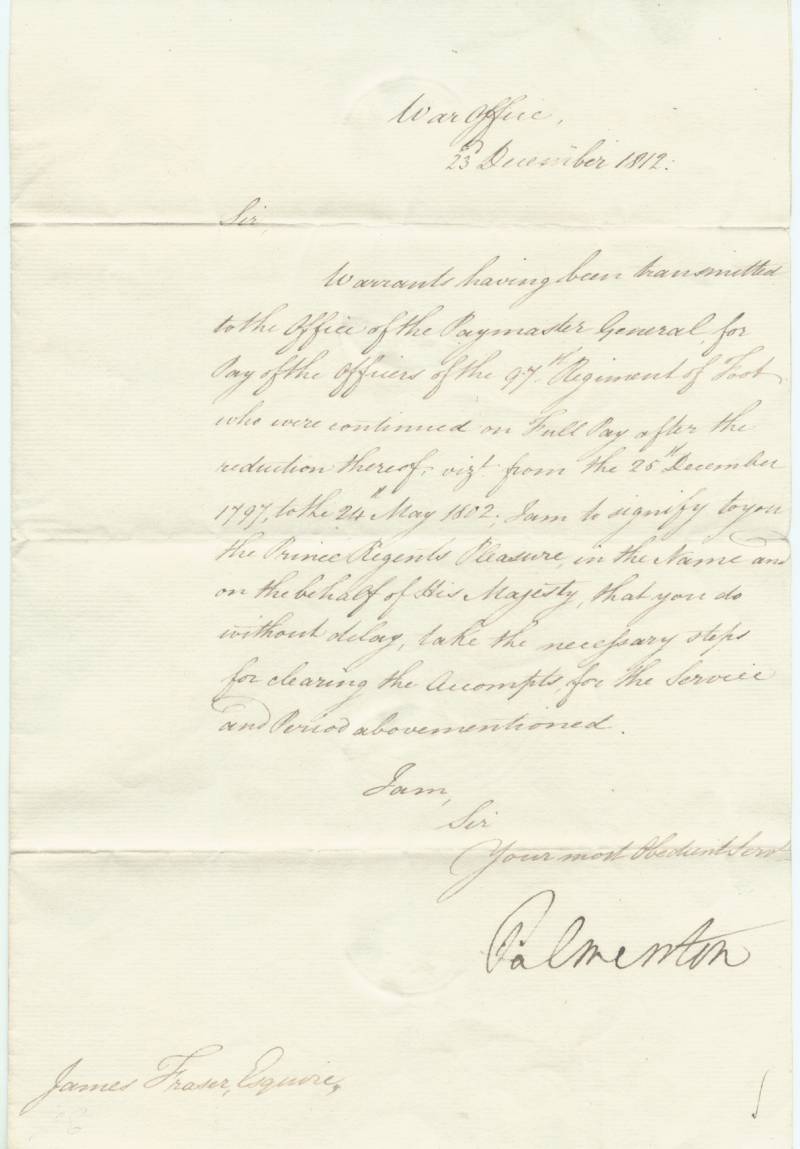 War Office,
23d December 1812:
Sir,
Warrants having been transmitted
to the Office of the Paymaster General, for
Pay of the Officers of the 97th Regiment of Foot
who were continued on Full Pay after the
reduction thereof, vizt. from the 25th December
1797, to the 24th May 1802; I am to signify to you
the Prince Regent's Pleasure, in the Name and
on the behalf of His Majesty, that you do
without delay, take the necessary steps
for clearing the Accompts, for the Service
and Period abovementioned.
I am,
Sir
Your most Obedient Servt
Palmerston
James Fraser, Esquire,